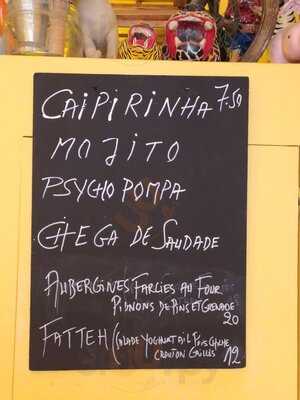 CAIPIRINHA 7.50
MOJITO
PSYCHO POMPA
CHEGA DE SAUDADE
AUBERGINES FARCIES AU FOUR
PIGNONS DE PINS ET GRENADE
20
FATTEH (SALADE YOGHURT AIL POIS CHICHE
CROUTON GRILLÉS 12